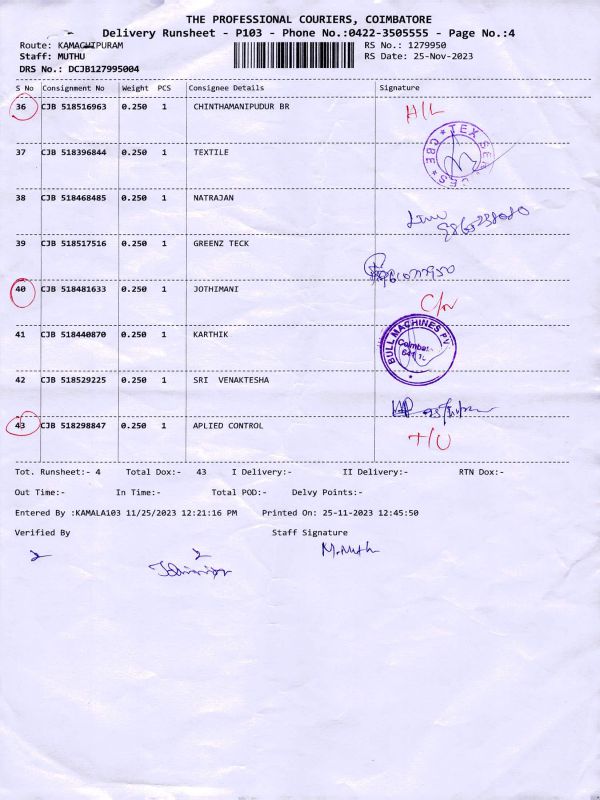 THE PROFESSIONAL COURIERS, COIMBATORE
Delivery Runsheet - P103 - Phone No.:0422-3505555 - Page No.:4
Route: KAMACHIPURAM RS No.: 1279950
Staff: MUTHU RS Date: 25-Nov-2023
DRS No.: DCJB127995004
S No Consignment No Weight PCS Consignee Details Signature
36 CJB 518516963 0.250 1 CHINTHAMANIPUDUR BR H/L
37 CJB 518396844 0.250 1 TEXTILE TEX SERVICES * CBE *
38 CJB 518468485 0.250 1 NATRAJAN
39 CJB 518517516 0.250 1 GREENZ TECK
40 CJB 518481633 0.250 1 JOTHIMANI
41 CJB 518440870 0.250 1 KARTHIK BULL MACHINES PV Coimbat
42 CJB 518529225 0.250 1 SRI VENAKTESHA
43 CJB 518298847 0.250 1 APLIED CONTROL
Tot. Runsheet:- 4 Total Dox:- 43 I Delivery:- II Delivery:- RTN Dox:-
Out Time:- In Time:- Total POD:- Delvy Points:-
Entered By :KAMALA103 11/25/2023 12:21:16 PM Printed On: 25-11-2023 12:45:50
Verified By Staff Signature
M.Muth